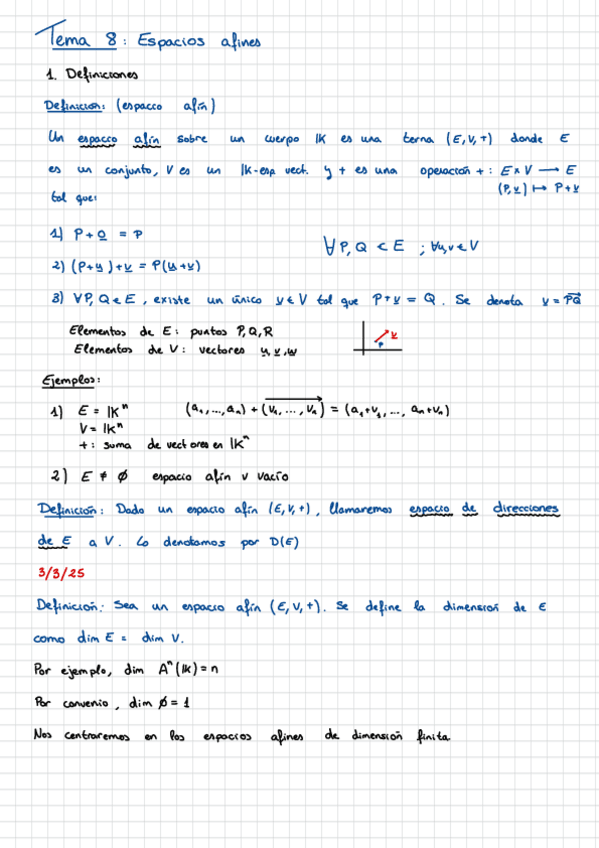 Tema 8: Espacios afines
1. Definiciones
Definición: (espacio afín)
Un espacio afín sobre un cuerpo IK es una terna (E,V,+) donde E
es un conjunto, V es un IK-esp vect. y + es una operación +: E×V → E
(P,v) ↦ P+v
tal que:
1) P+0 = P
∀P,Q ∈ E ; ∀u,v ∈ V
2) (P+u)+v = P(u+v)
3) ∀P,Q ∈ E, existe un único v ∈ V tal que P+v = Q. Se denota v = PQ⃗
Elementos de E: puntos P,Q,R
Elementos de V: vectores u,v,w
v
P
Ejemplos:
1) E = IKⁿ (a₁,...,aₙ) + (v₁,...,vₙ) = (a₁+v₁,..., aₙ+vₙ)
V = IKⁿ
+: suma de vectores en IKⁿ
2) E ≠ ∅ espacio afín v vacío
Definición: Dado un espacio afín (E,V,+), llamaremos espacio de direcciones
de E a V. Lo denotamos por D(E)
3/3/25
Definición: Sea un espacio afín (E,V,+). Se define la dimensión de E
como dim E = dim V.
Por ejemplo, dim Aⁿ(IK) = n
Por convenio, dim ∅ = 1
Nos centraremos en los espacios afines de dimensión finita.